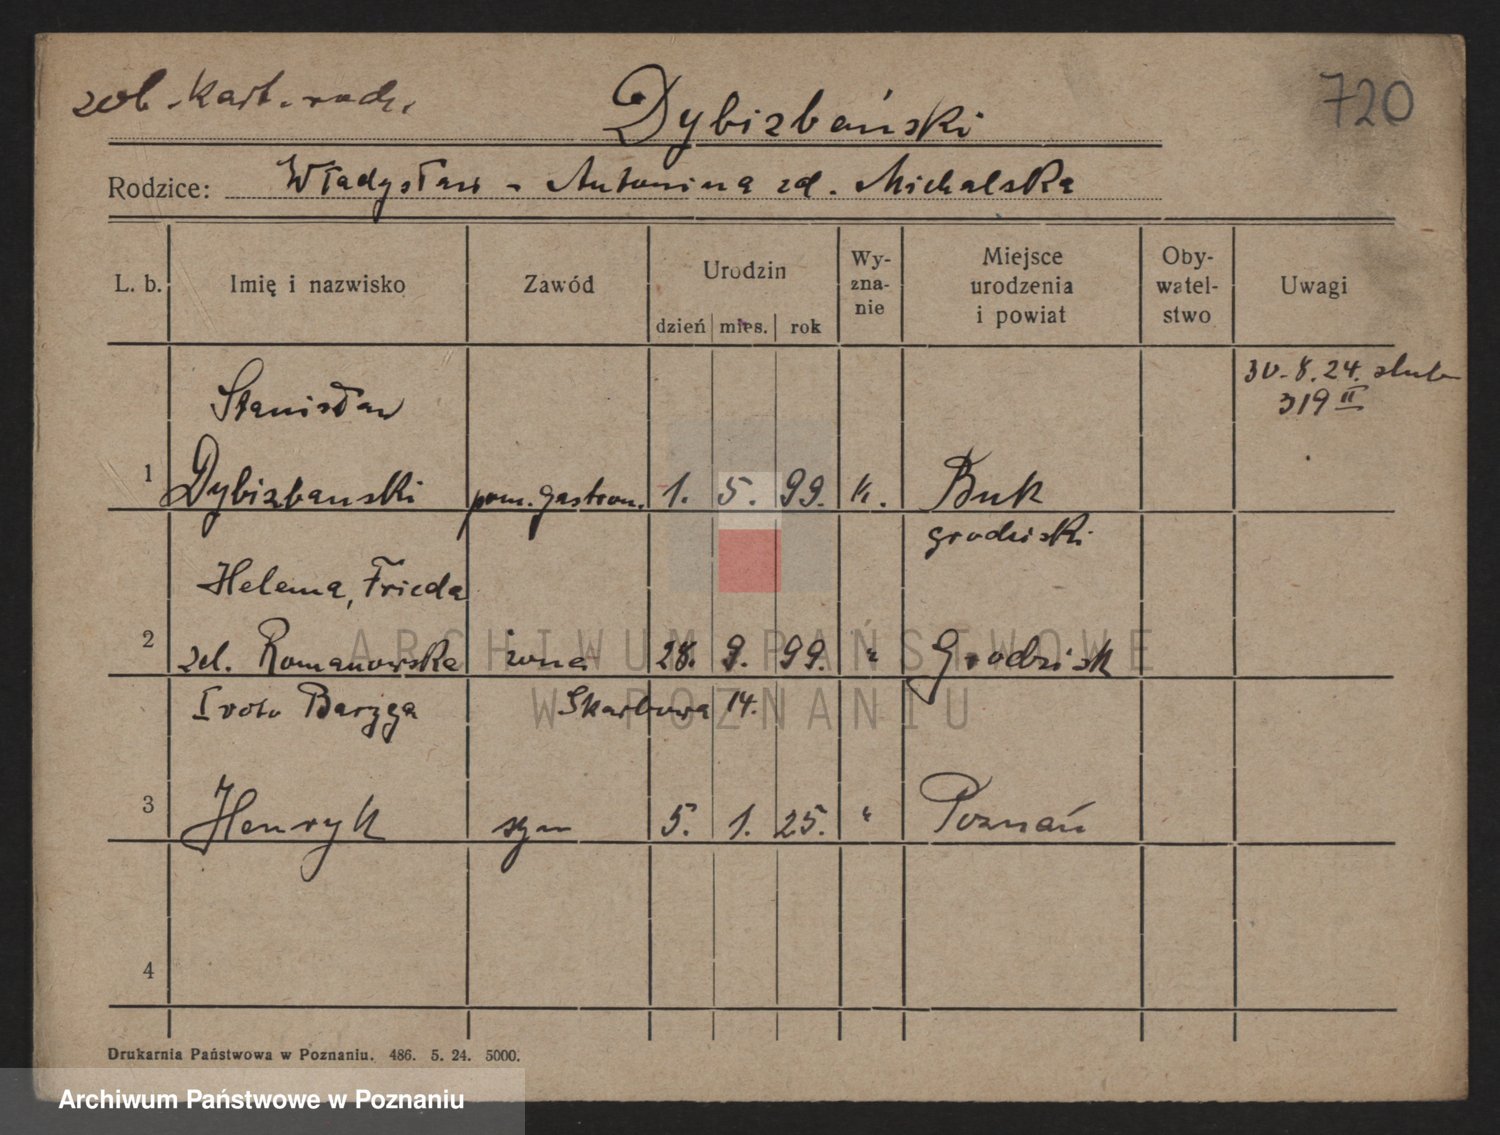 zob. kart. rodz. Dybizbański 720
Rodzice: Władysław - Antonina zd. Michalska
L. b. Imię i nazwisko Zawód Urodzin dzień mies. rok Wy-zna-nie Miejsce urodzenia i powiat Oby-watel-stwo Uwagi
Stanisław 30.8.24. ślub
319 II
1 Dybizbanski pom. gastron. 1. 5. 99. k. Buk
grodziski
Helena, Frieda
2 zd. Romanowska żona 28. 9. 99. " Grodzisk
Skarbowa 14.
3 Henryk syn 5. 1. 25. " Poznań
4
Drukarnia Państwowa w Poznaniu. 486. 5. 24. 5000.
ARCHIWUM PAŃSTWOWE
W POZNANIU
Archiwum Państwowe w Poznaniu